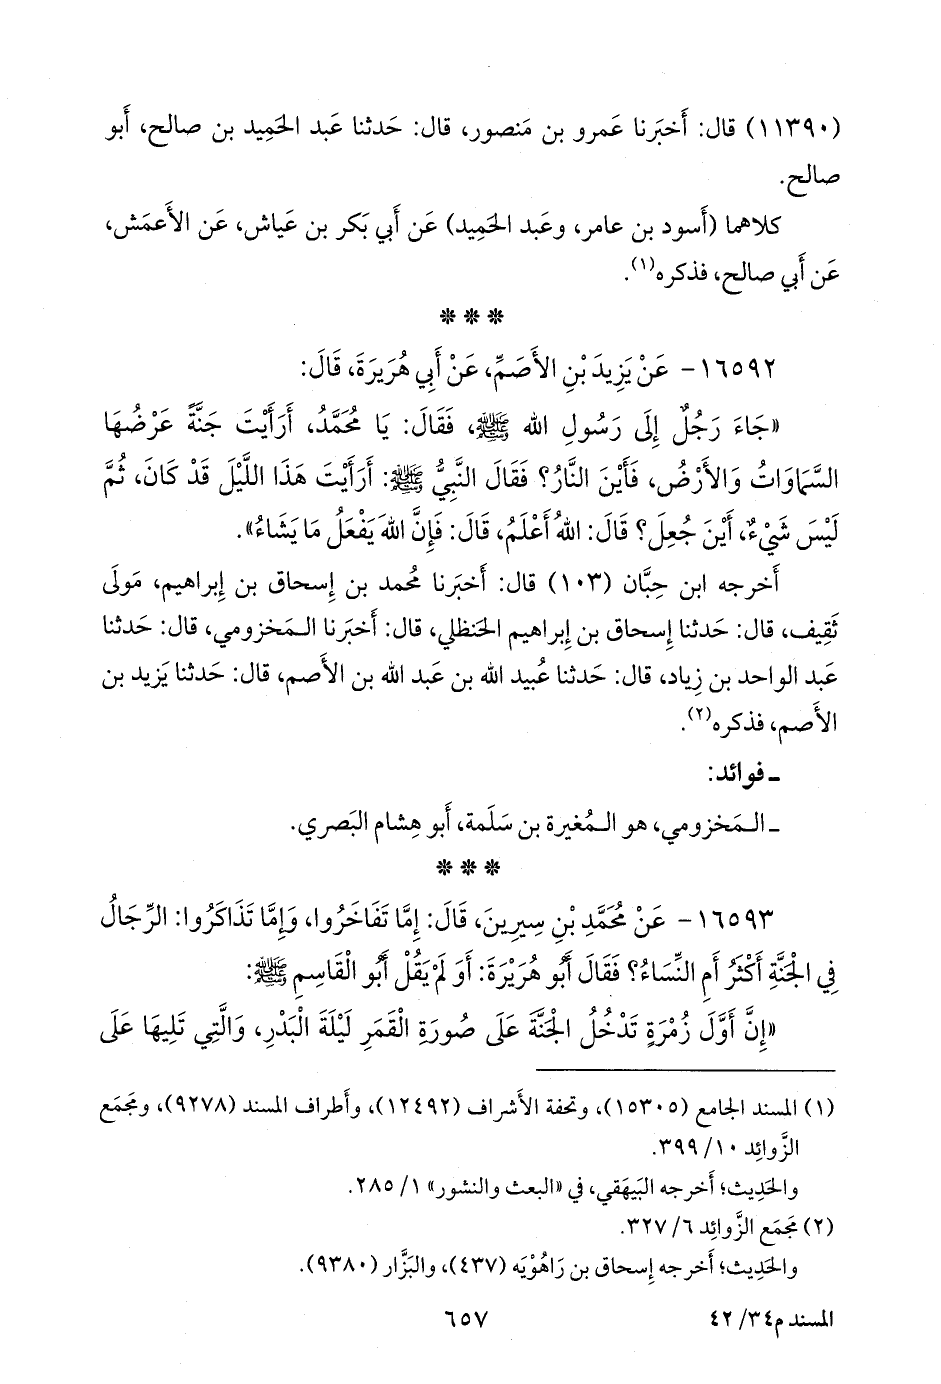 (١١٣٩٠) قال: أَخبَرنا عَمرو بن مَنصور، قال: حَدثنا عَبد الحَمِيد بن صالح، أَبو
صالح.
كلاهما (أَسود بن عامر، وعَبد الحَمِيد) عَن أَبي بَكر بن عَياش، عَن الأَعمَش،
عَن أَبي صالح، فذكره(١).
* * *
١٦٥٩٢- عَنْ يَزِيدَ بْنِ الأَصَمِّ، عَنْ أَبِي هُرَيرَةَ، قَالَ:
«جَاءَ رَجُلٌ إِلَى رَسُولِ الله ﷺ، فَقَالَ: يَا مُحَمَّدُ، أَرَأَيْتَ جَنَّةً عَرْضُهَا
السَّمَاوَاتُ وَالأَرْضُ، فَأَيْنَ النَّارُ؟ فَقَالَ النَّبِيُّ ﷺ: أَرَأَيْتَ هَذَا اللَّيْلَ قَدْ كَانَ، ثُمَّ
لَيْسَ شَيْءٌ، أَيْنَ جُعِلَ؟ قَالَ: اللهُ أَعْلَمُ، قَالَ: فَإِنَّ اللهَ يَفْعَلُ مَا يَشَاءُ».
أَخرجه ابن حِبَّان (١٠٣) قال: أَخبَرنا مُحمد بن إِسحاق بن إِبراهيم، مَولَى
ثَقِيف، قال: حَدثنا إِسحاق بن إِبراهيم الحَنظلي، قال: أَخبَرنا الـمَخزومي، قال: حَدثنا
عَبد الواحد بن زياد، قال: حَدثنا عُبيد الله بن عَبد الله بن الأَصم، قال: حَدثنا يَزيد بن
الأَصم، فذكره(٢).
ـ فوائد:
ـ الـمَخزومي، هو الـمُغيرة بن سَلَمة، أَبو هِشام البَصري.
* * *
١٦٥٩٣- عَنْ مُحَمَّدِ بْنِ سِيرِينَ، قَالَ: إِمَّا تَفَاخَرُوا، وَإِمَّا تَذَاكَرُوا: الرِّجَالُ
فِي الْجَنَّةِ أَكْثَرُ أَمِ النِّسَاءُ؟ فَقَالَ أَبُو هُرَيْرَةَ: أَوَ لَمْ يَقُلْ أَبُو الْقَاسِمِ ﷺ:
«إِنَّ أَوَّلَ زُمْرَةٍ تَدْخُلُ الْجَنَّةَ عَلَى صُورَةِ الْقَمَرِ لَيْلَةَ الْبَدْرِ، وَالَّتِي تَلِيهَا عَلَى
(١) المسند الجامع (١٥٣٠٥)، وتحفة الأشراف (١٢٤٩٢)، وأَطراف المسند (٩٢٧٨)، ومَجمَع
الزَّوائِد ١٠/ ٣٩٩.
والحَدِيث؛ أَخرجه البَيهَقي، في «البعث والنشور» ١/ ٢٨٥.
(٢) مَجمَع الزَّوائِد ٦/ ٣٢٧.
والحَدِيث؛ أَخرجه إِسحاق بن رَاهُوْيَه (٤٣٧)، والبَزَّار (٩٣٨٠).
المسند م٣٤/ ٤٢
٦٥٧